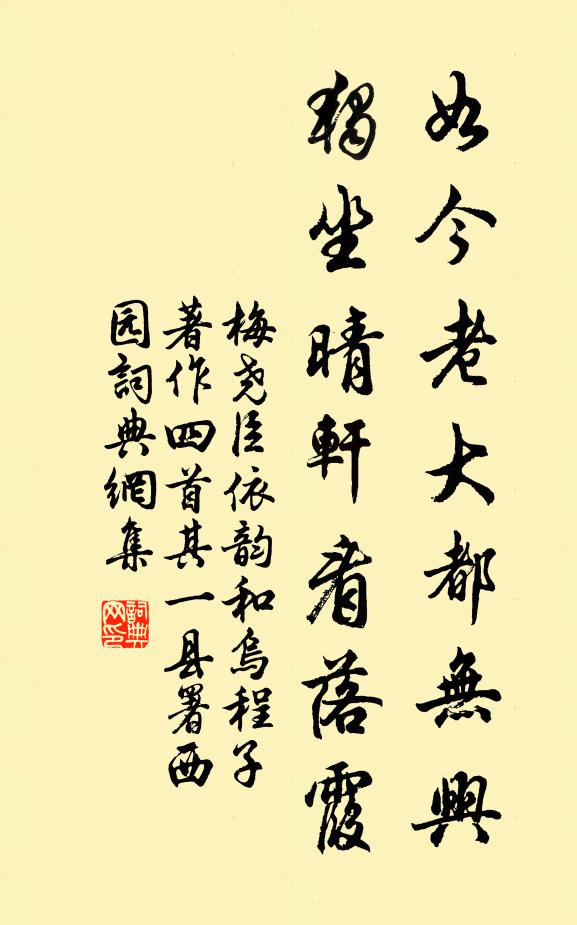 如今老大都無興
獨坐晴軒看落霞
梅尧臣依韵和烏程子
著作四首其一县署西
园詞典網集
詞典
网印